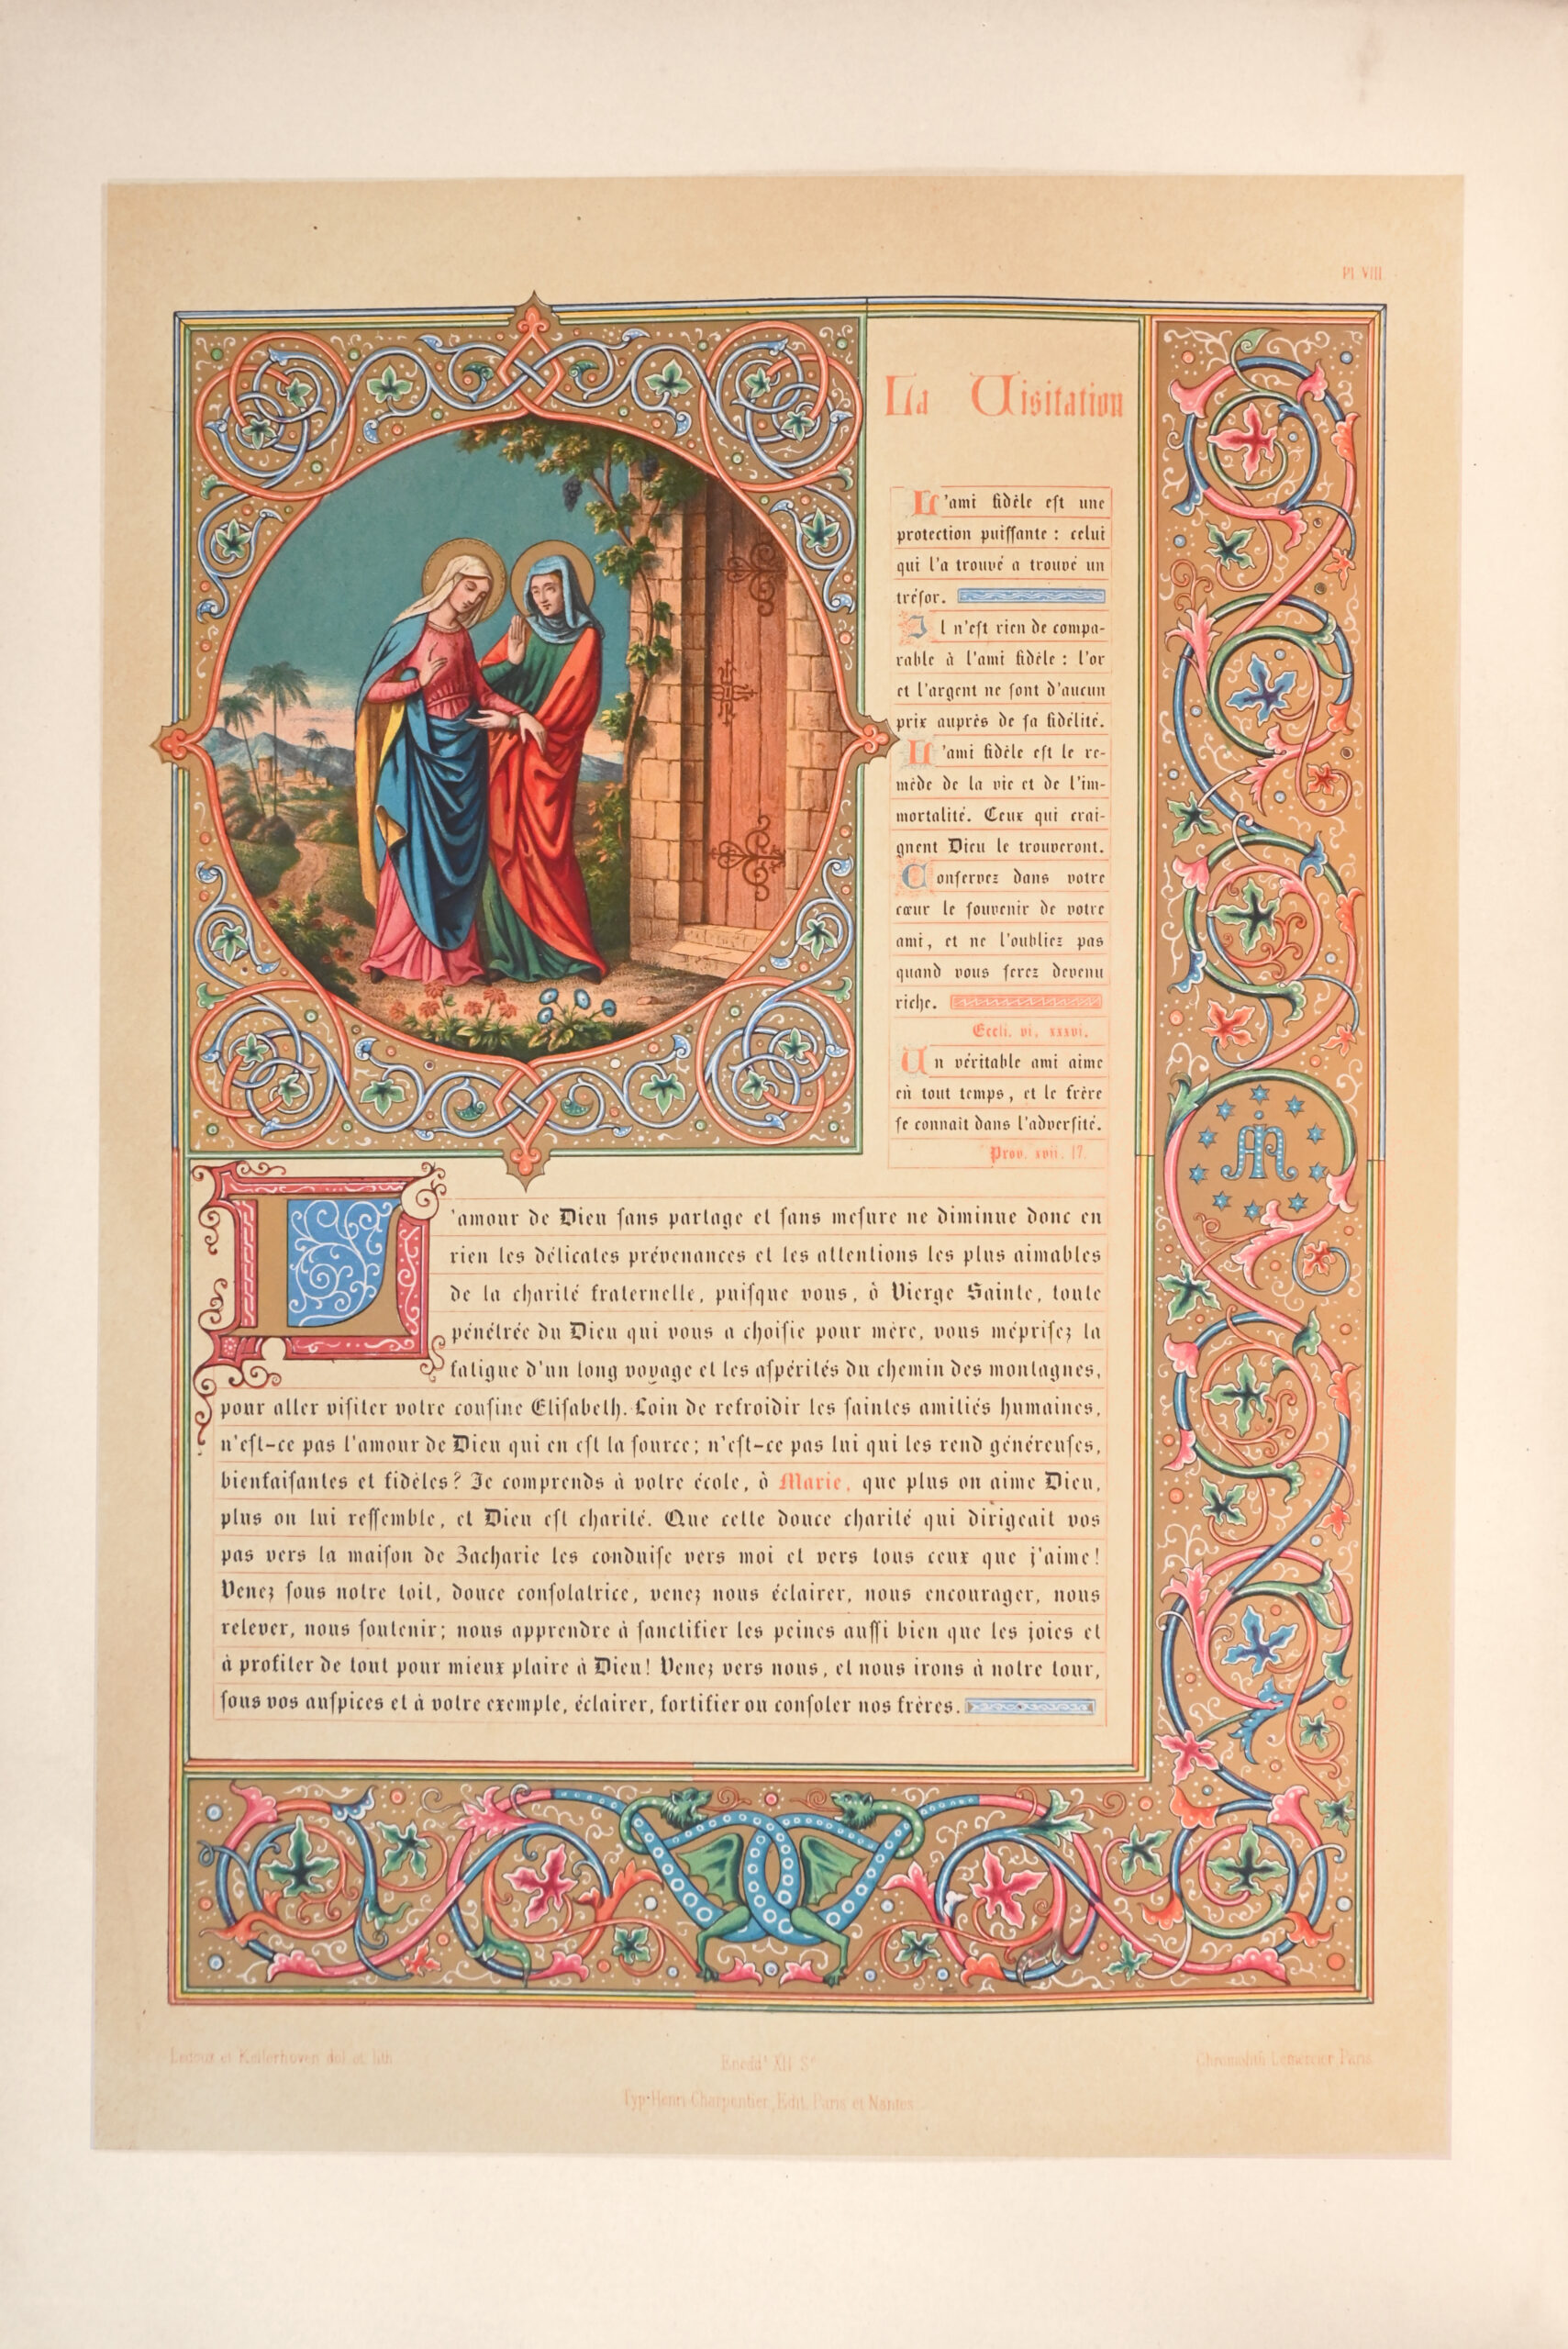 Pl VIII
La Visitation
L'ami fidèle eſt une
protection puiſſante : celui
qui l'a trouvé a trouvé un
tréſor.
Il n'eſt rien de compa-
rable à l'ami fidèle : l'or
et l'argent ne ſont d'aucun
prix auprès de ſa fidélité.
L'ami fidèle eſt le re-
mède de la vie et de l'im-
mortalité. Ceux qui crai-
gnent Dieu le trouveront.
Conſervez dans votre
cœur le ſouvenir de votre
ami, et ne l'oubliez pas
quand vous ſerez devenu
riche.
Eccli. vi. xxxvi.
Un véritable ami aime
en tout temps, et le frère
ſe connait dans l'adverſité.
Prov. xvii. 17.
L'amour de Dieu ſans partage et ſans meſure ne diminue donc en
rien les délicates prévenances et les attentions les plus aimables
de la charité fraternelle, puiſque vous, ô Vierge Sainte, toute
pénétrée du Dieu qui vous a choiſie pour mère, vous mépriſez la
fatigue d'un long voyage et les aſpérités du chemin des montagnes,
pour aller viſiter votre couſine Eliſabeth. Loin de refroidir les ſaintes amitiés humaines,
n'eſt-ce pas l'amour de Dieu qui en eſt la ſource; n'eſt-ce pas lui qui les rend généreuſes,
bienfaiſantes et fidèles? Je comprends à votre école, ô Marie, que plus on aime Dieu,
plus on lui reſſemble, et Dieu eſt charité. Que cette douce charité qui dirigeait vos
pas vers la maiſon de Zacharie les conduiſe vers moi et vers tous ceux que j'aime!
Venez ſous notre toit, douce conſolatrice, venez nous éclairer, nous encourager, nous
relever, nous ſoutenir; nous apprendre à ſanctifier les peines auſſi bien que les joies et
à profiter de tout pour mieux plaire à Dieu! Venez vers nous, et nous irons à notre tour,
ſous vos auſpices et à votre exemple, éclairer, fortifier ou conſoler nos frères.
Ledoux et Kellerhoven del. et lith.
XII S.e
Chromolith. Lemercier, Paris
Typ. Henri Charpentier, Edit. Paris et Nantes